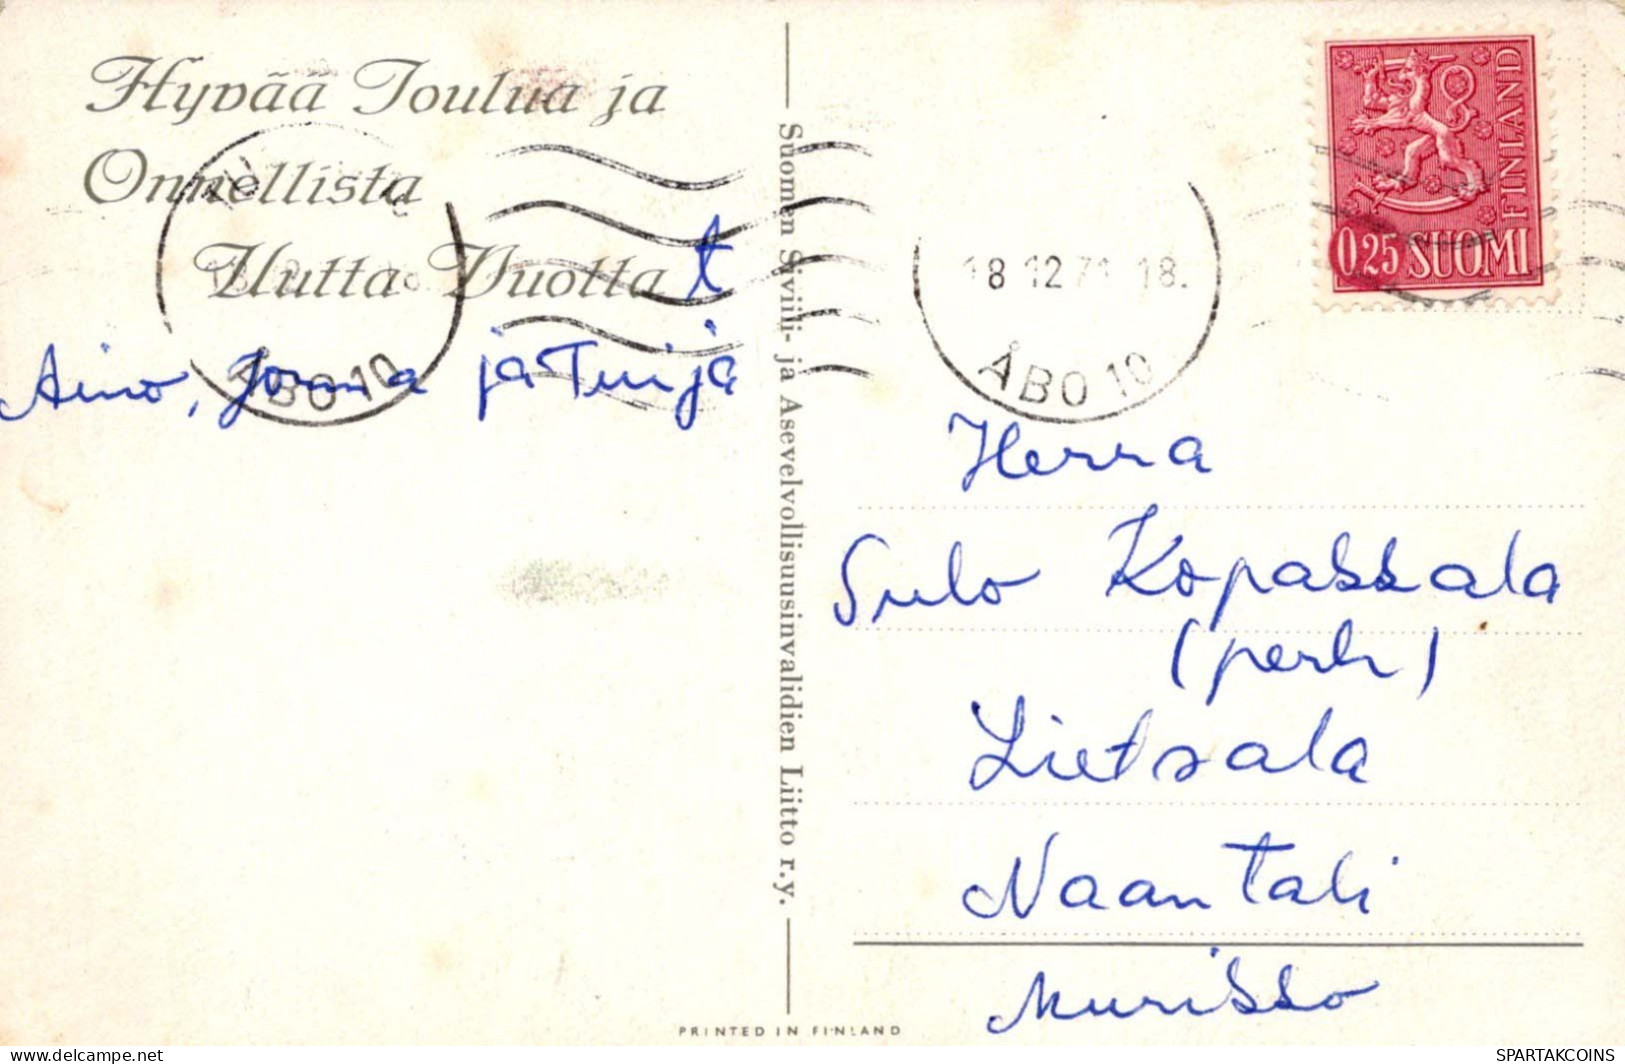 Hyvää Joulua ja
Onnellista
Uutta Vuotta t
Aino, Jorma ja Tuija
Suomen Siviili- ja Asevelvollisuusinvalidien Liitto r.y.
PRINTED IN FINLAND
FINLAND
0,25 SUOMI
18.12.71 18.
ÅBO 10
ÅBO 10
Herra
Sulo Kopakkala
(perh)
Lietsala
Naantali
Murikko
SPARTAKCOINS
https://www.delcampe.net
SPARTAKCOINS.COM